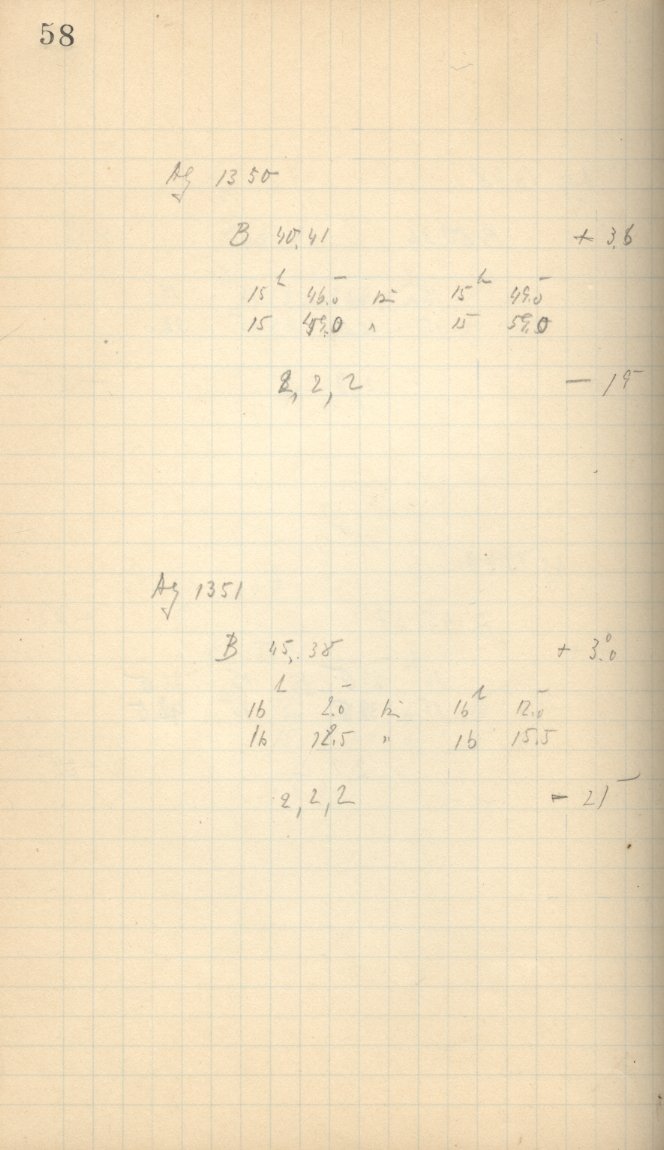 58
Ag 1350
B 45.41 + 3.6
15h 46.5 bis 15h 49.5
15 49.0 " 15 59.0
2, 2, 2 - 1m
Ag 1351
B 45.38 + 3°.0
16h 2.0 bis 16h 12.0
16 12.5 " 16 15.5
2, 2, 2 - 21m